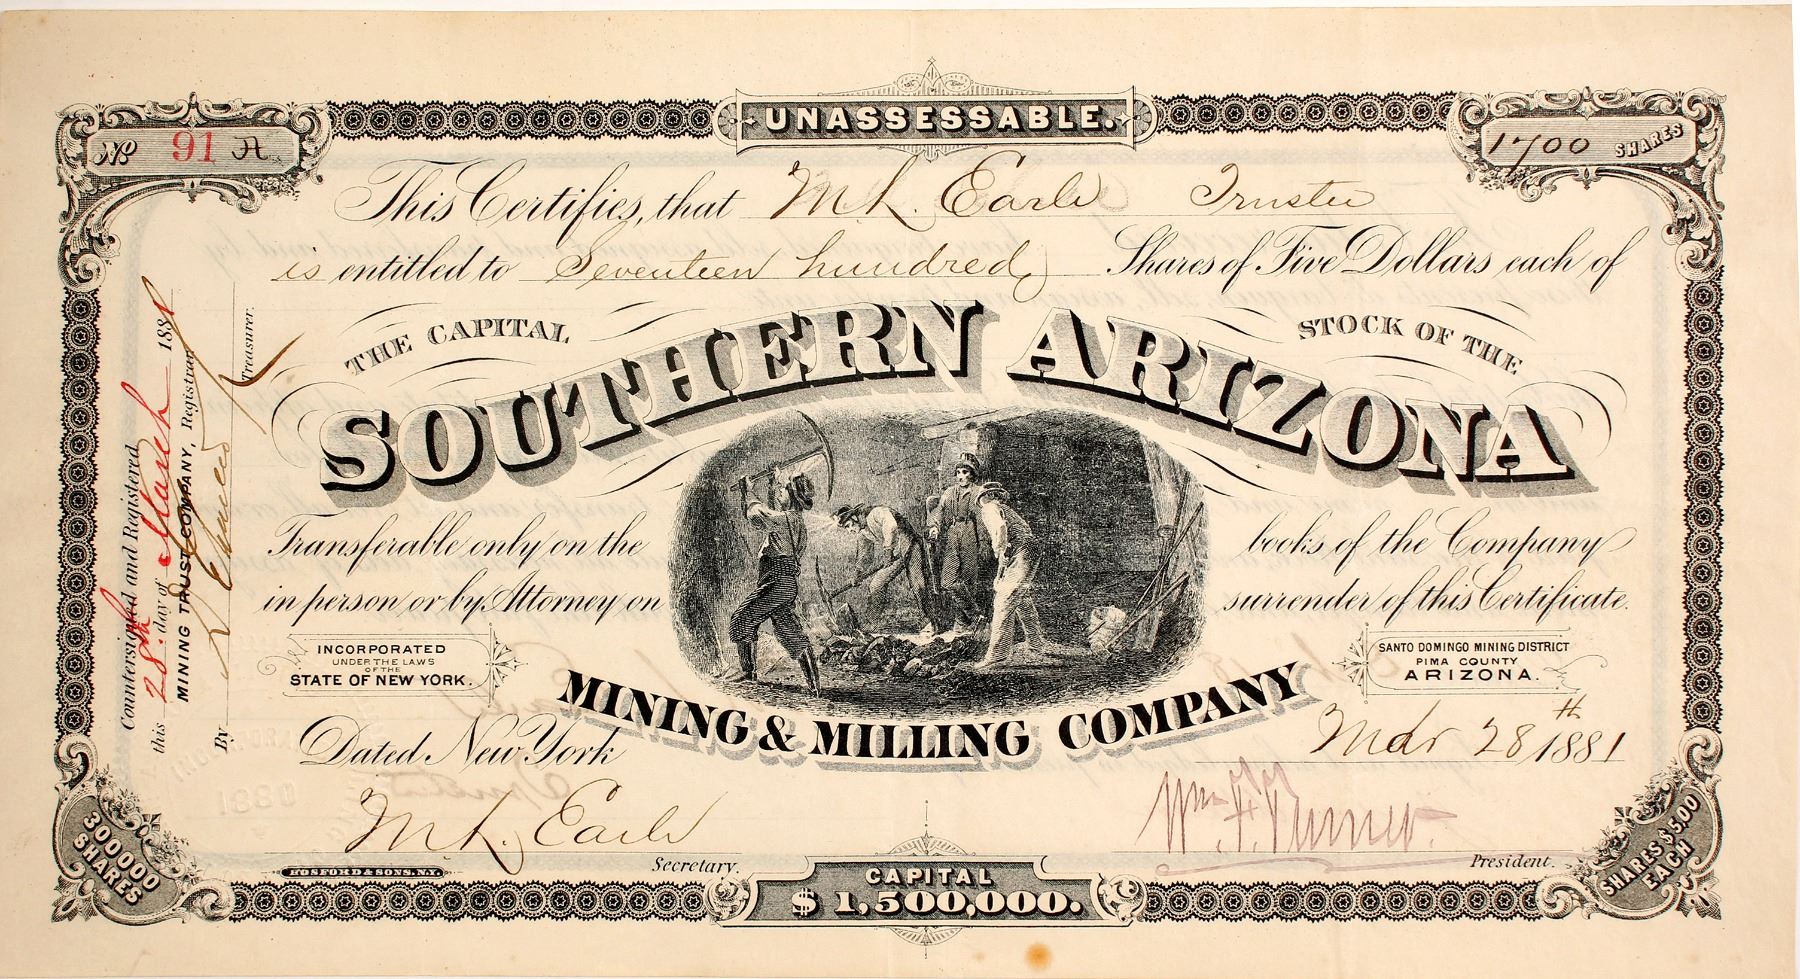 UNASSESSABLE.
No 91 A
1700 SHARES
This Certifies, that M L. Earle Trustee
is entitled to Seventeen hundred Shares of Five Dollars each of
THE CAPITAL STOCK OF THE
SOUTHERN ARIZONA
Transferable only on the books of the Company
in person or by Attorney on surrender of this Certificate.
INCORPORATED
UNDER THE LAWS
OF THE
STATE OF NEW YORK.
SANTO DOMINGO MINING DISTRICT
PIMA COUNTY
ARIZONA.
MINING & MILLING COMPANY
Dated New York Mar 28th 1881
M L. Earle
Secretary.
Wm. F.
President.
HOSFORD & SONS. N.Y.
CAPITAL
$1,500,000.
300000
SHARES
SHARES $5.00
EACH
Countersigned and Registered
this 28th day of March 1881
MINING TRUST COMPANY, Registrar
By
Treasurer.
1880